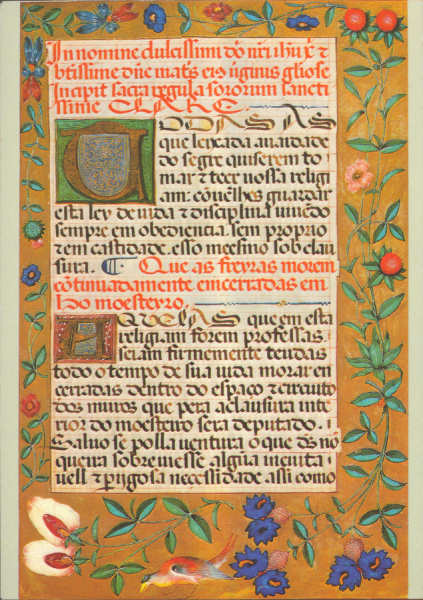 In nomine dulcissimi dñi nr̃i ihũ x̃ ⁊
btissime dñe mat̃s eiꝰ uirginis gl̃iose
Incipit sacra regula sororum sancti
ssime CLARE
TODAS AS
que leixada auaidade
do segre quiserem to
mar ⁊ teer uossa religi
am: cõuẽlhes guardar
esta ley de uida ⁊ disciplina uiuẽdo
sempre em obediencia. sem proprio
⁊ em castidade. esso meesmo sob clau
sura. ¶ Que as freyras morem
cõtinuadamente encerradas em
ho moesteyro.
AQUELAS que em esta
religiam forem professas.
seiam firmemente teudas
todo o tempo de sua uida morar en
cerradas dentro do espaço ⁊ circuito
dos muros que pera aclausura inte
rior do moesteiro sera deputado.
Saluo se polla uentura o que ds̃ nõ
queira sobreuiesse algũa ineuita
uell ⁊ ꝑijgosa necessidade. assi como